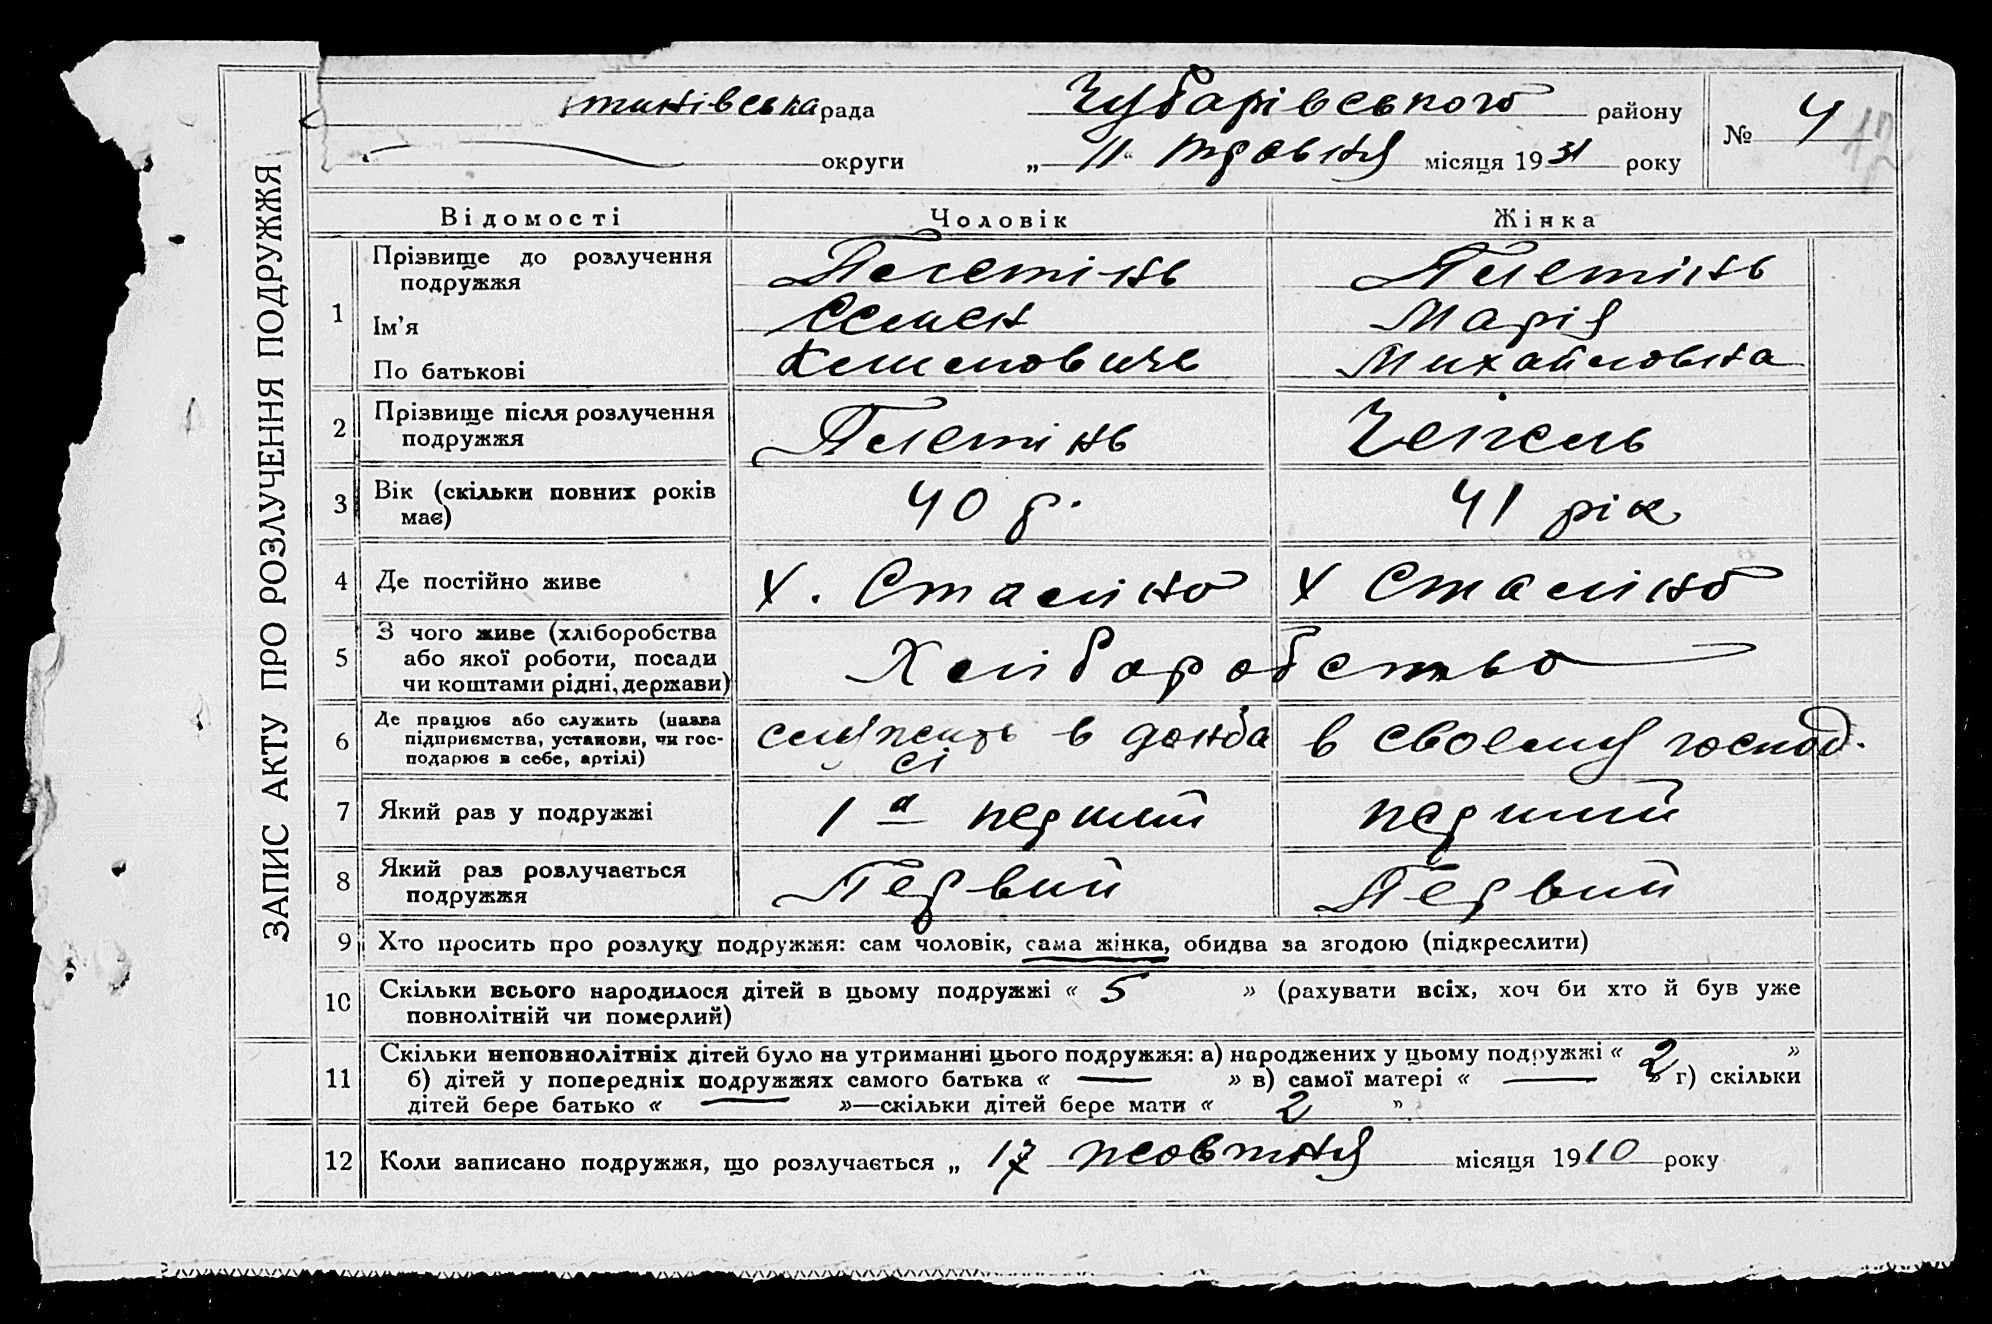 ЗАПИС АКТУ ПРО РОЗЛУЧЕННЯ ПОДРУЖЖЯ
рада Чубарівського району № 4
округи „ 11 “ травня місяця 1931 року
Відомості Чоловік Жінка
1 Прізвище до розлучення подружжя Плетінь Плетінь
Ім’я Семен Марія
По батькові Михайловна
2 Прізвище після розлучення подружжя Плетінь Чепель
3 Вік (скільки повних років має) 40 р. 41 рік
4 Де постійно живе Х. Сталіно Х Сталіно
5 З чого живе (хліборобства або якої роботи, посади чи коштами рідні, держави) Хліборобство
6 Де працює або служить (назва підприємства, установи, чи господарює в себе, артілі) служить в донбасі в своему господ.
7 Який раз у подружжі 1й перший перший
8 Який раз розлучається подружжя Первий Первий
9 Хто просить про розлуку подружжя: сам чоловік, сама жінка, обидва за згодою (підкреслити)
10 Скільки всього народилося дітей в цьому подружжі « 5 » (рахувати всіх, хоч би хто й був уже
повнолітній чи померлий)
11 Скільки неповнолітніх дітей було на утриманні цього подружжя: а) народжених у цьому подружжі « 2 »
б) дітей у попередніх подружжях самого батька « — » в) самої матері « — » г) скільки
дітей бере батько « — »—скільки дітей бере мати « 2 »
12 Коли записано подружжя, що розлучається „ 17 жовтня місяця 1910 року